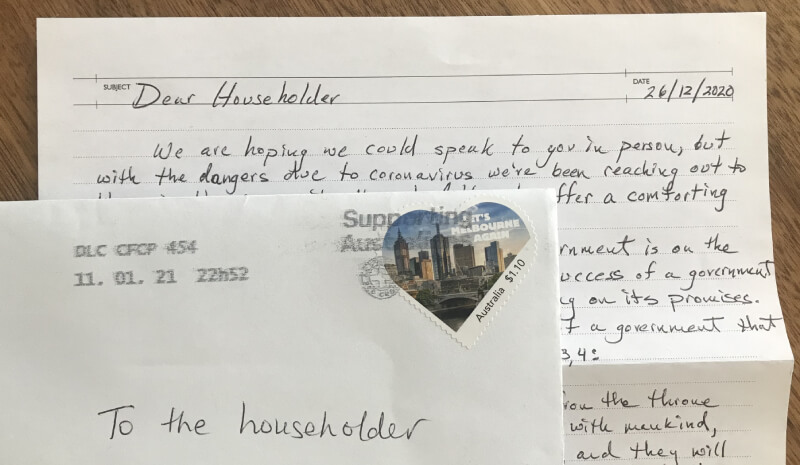 SUBJECT Dear Householder DATE 26/12/2020
We are hoping we could speak to you in person, but
with the dangers due to coronavirus we've been reaching out to
offer a comforting
ernment is on the
uccess of a government
g on its promises.
f a government that
3,4:
from the throne
with mankind,
and they will
DLC CFCP 454
11. 01. 21 22h52
Supporting
IT'S
MELBOURNE
AGAIN
Australia $1.10
To the householder